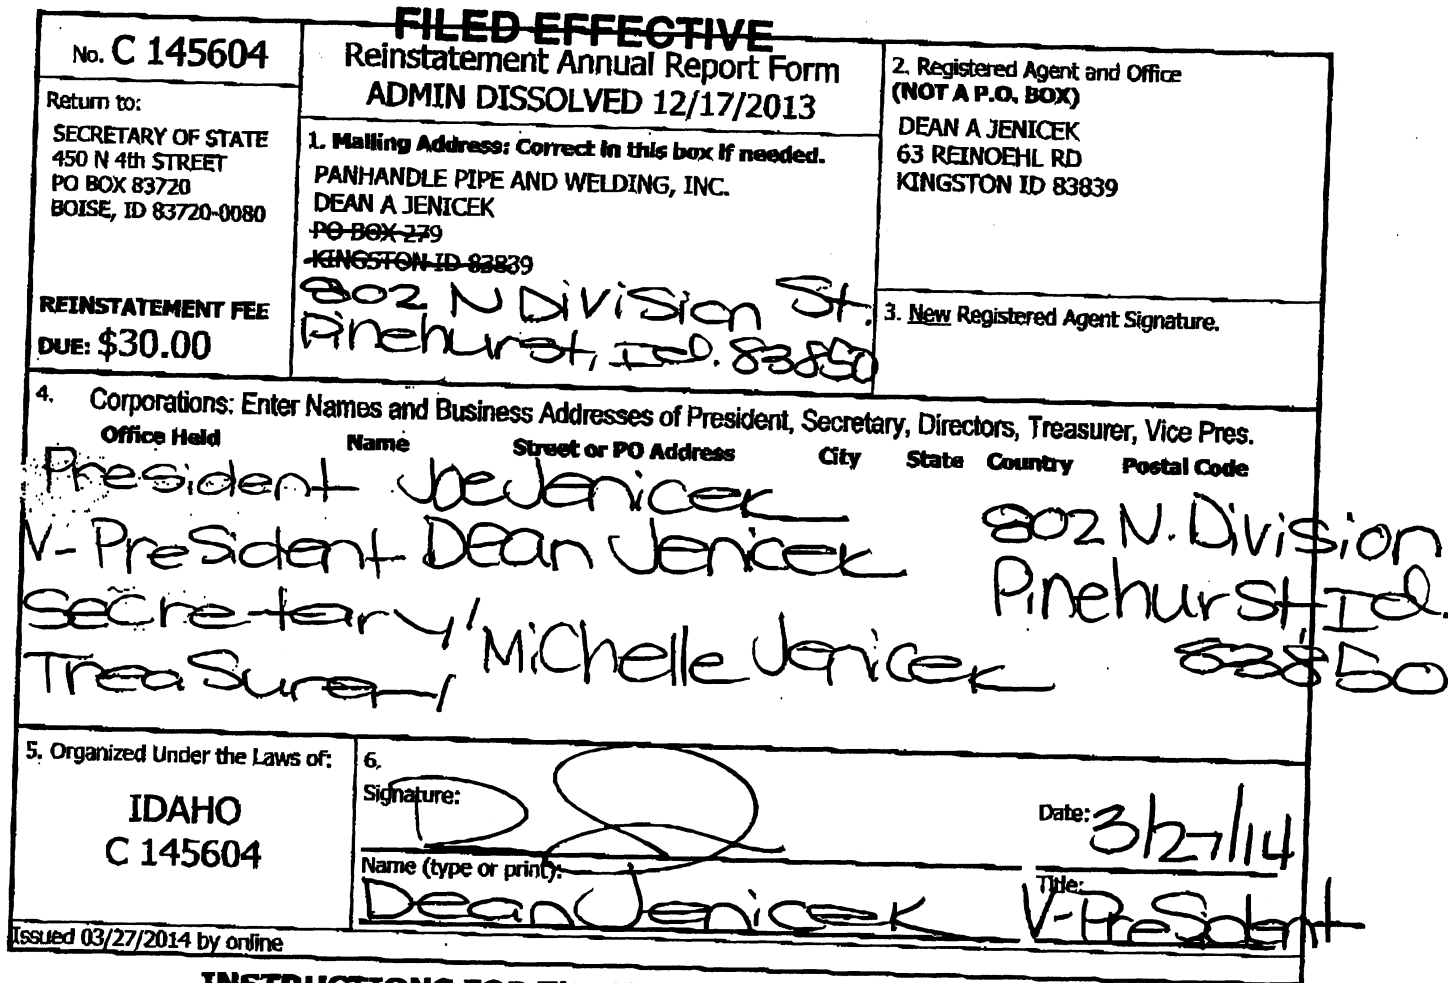 FILED EFFECTIVE
No. C 145604
Return to:
SECRETARY OF STATE
450 N 4th STREET
PO BOX 83720
BOISE, ID 83720-0080
REINSTATEMENT FEE
DUE: $30.00
Reinstatement Annual Report Form
ADMIN DISSOLVED 12/17/2013
1. Mailing Address: Correct in this box if needed.
PANHANDLE PIPE AND WELDING, INC.
DEAN A JENICEK
PO BOX 279
KINGSTON ID 83839
802 N DiViSion St.
Pinehurst, Id. 83850
2. Registered Agent and Office
(NOT A P.O. BOX)
DEAN A JENICEK
63 REINOEHL RD
KINGSTON ID 83839
3. New Registered Agent Signature.
4. Corporations: Enter Names and Business Addresses of President, Secretary, Directors, Treasurer, Vice Pres.
Office Held Name Street or PO Address City State Country Postal Code
President Joe Jenicek
V-PreSident Dean Jenicek 802 N. Division
Secretary/ Michelle Jenicek Pinehurst, Id.
TreaSurer/ 83850
5. Organized Under the Laws of:
IDAHO
C 145604
6.
Signature:
Date: 3/27/14
Name (type or print):
Dean Jenicek
Title:
V-PreSident
Issued 03/27/2014 by online